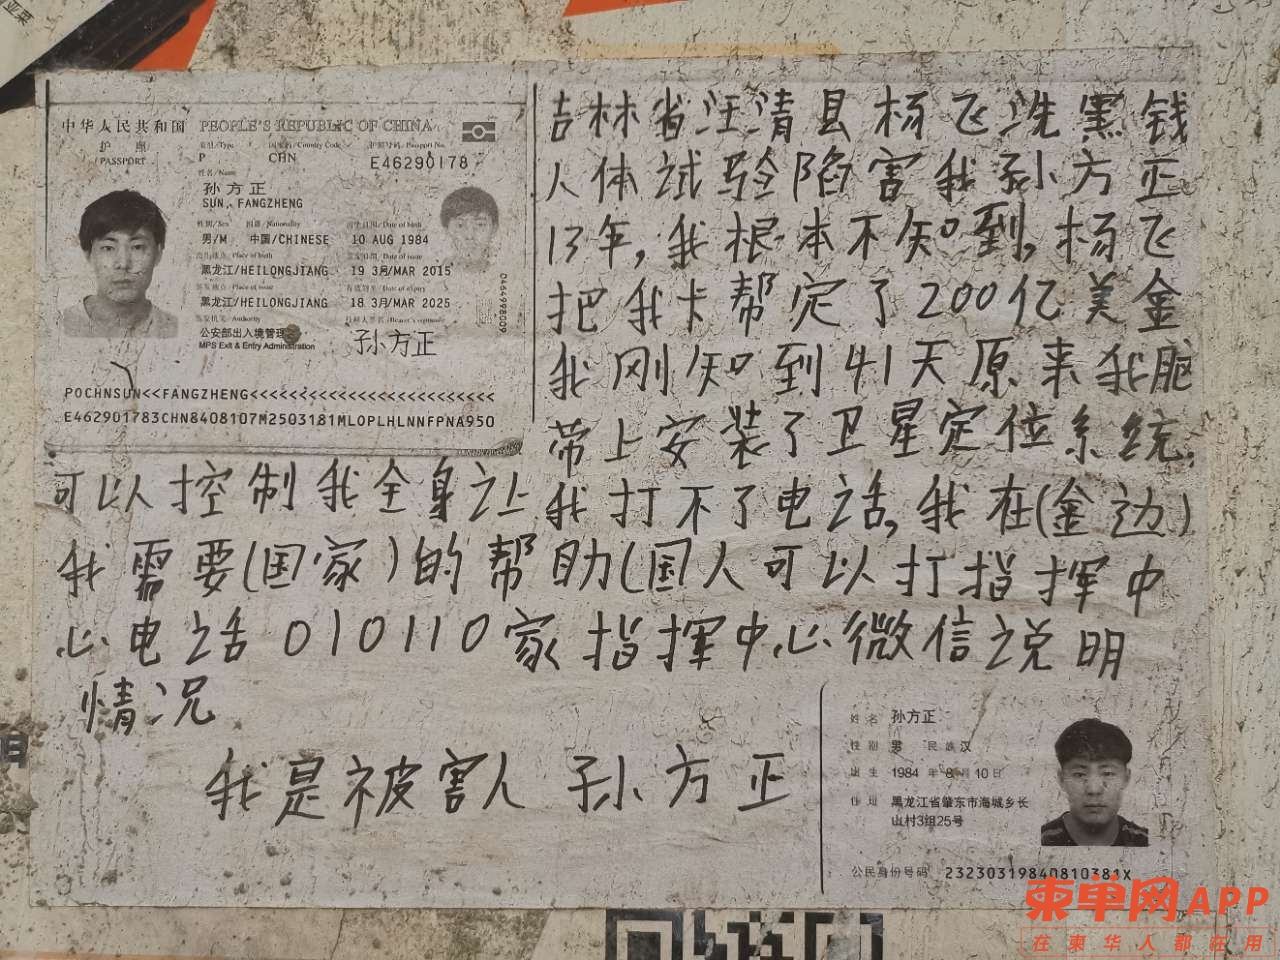 中华人民共和国 PEOPLE'S REPUBLIC OF CHINA
护照
/PASSPORT
P CHN E46290178
孙方正
SUN, FANGZHENG
男/M 中国/CHINESE 10 AUG 1984
黑龙江/HEILONGJIANG 19 3月/MAR 2015
黑龙江/HEILONGJIANG 18 3月/MAR 2025
公安部出入境管理
MPS Exit & Entry Administration
孙方正
POCHNSUN<<FANGZHENG<<<<<<<<<<<<<<<<<<<<<<<<<
E462901783CHN8408107M2503181MLOPLHLNNFPNA950
吉林省汪清县杨飞洗黑钱
人体试验陷害我孙方正
13年,我根本不知到,杨飞
把我卡帮定了200亿美金
我刚知到41天原来我脏
带上安装了卫星定位系统,
可以控制我全身之上我打不了电话,我在(金边)
我需要(国家)的帮助(国人可以打指挥中
心电话010110家指挥中心微信说明
情况
我是被害人孙方正
姓名 孙方正
性别 男 民族汉
出生 1984年8月10日
住址 黑龙江省肇东市海城乡长
山村3组25号
公民身份号码 23230319840810381X
柬单网APP
在柬华人都在用